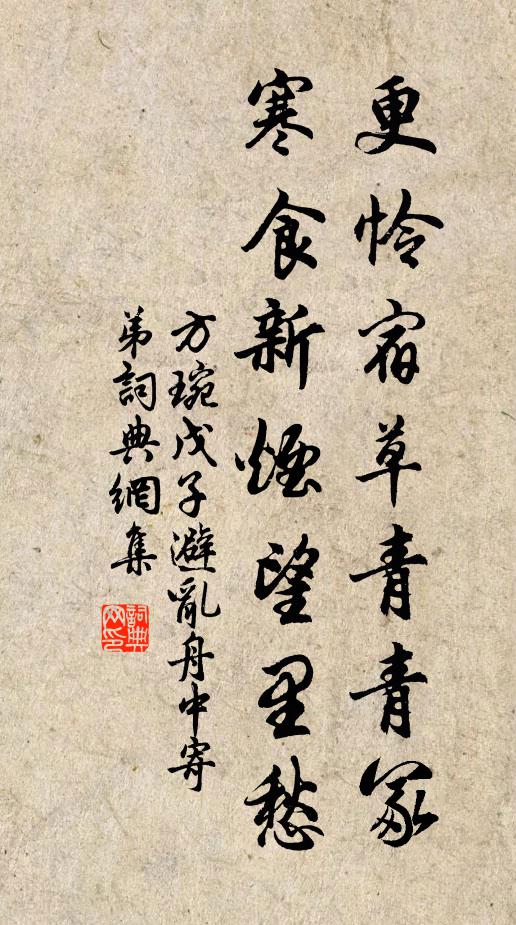 更怜宿草青青冢
寒食新煙望里愁
方琬戊子避亂舟中寄
弟詞典網集
詞典网印